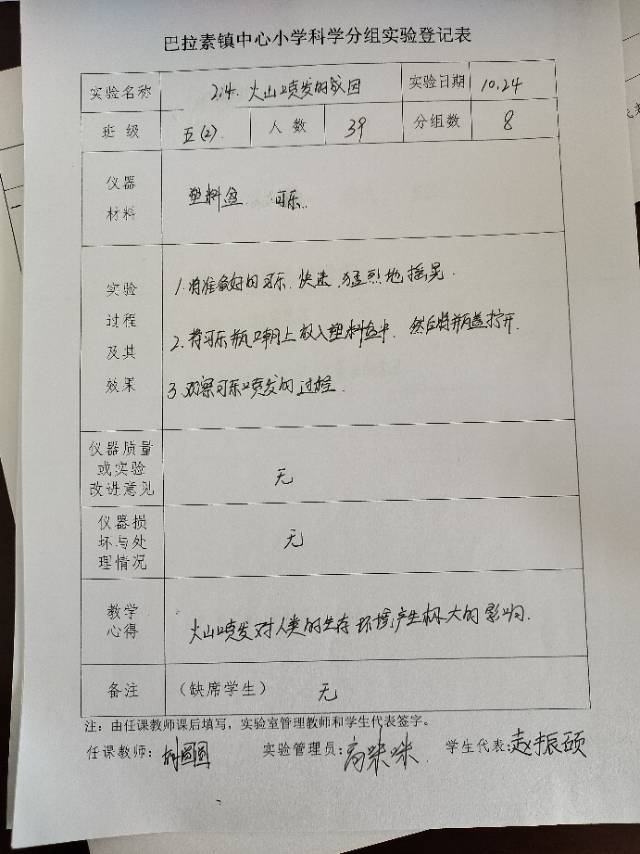 巴拉素镇中心小学科学分组实验登记表
实验名称 2.4. 火山喷发的成因 实验日期 10.24
班级 五(2) 人数 39 分组数 8
仪器
材料
塑料盒 可乐.
实验
过程
及其
效果
1.将准备好的可乐.快速、猛烈地摇晃.
2.将可乐瓶口朝上放入塑料盒中.然后将瓶盖拧开.
3.观察可乐喷发的过程.
仪器质量
或实验
改进意见
无
仪器损
坏与处
理情况
无
教学
心得
火山喷发对人类的生存环境产生极大的影响.
备注 （缺席学生） 无
注：由任课教师课后填写，实验室管理教师和学生代表签字。
任课教师： 圆圆 实验管理员：高 学生代表：赵振硕